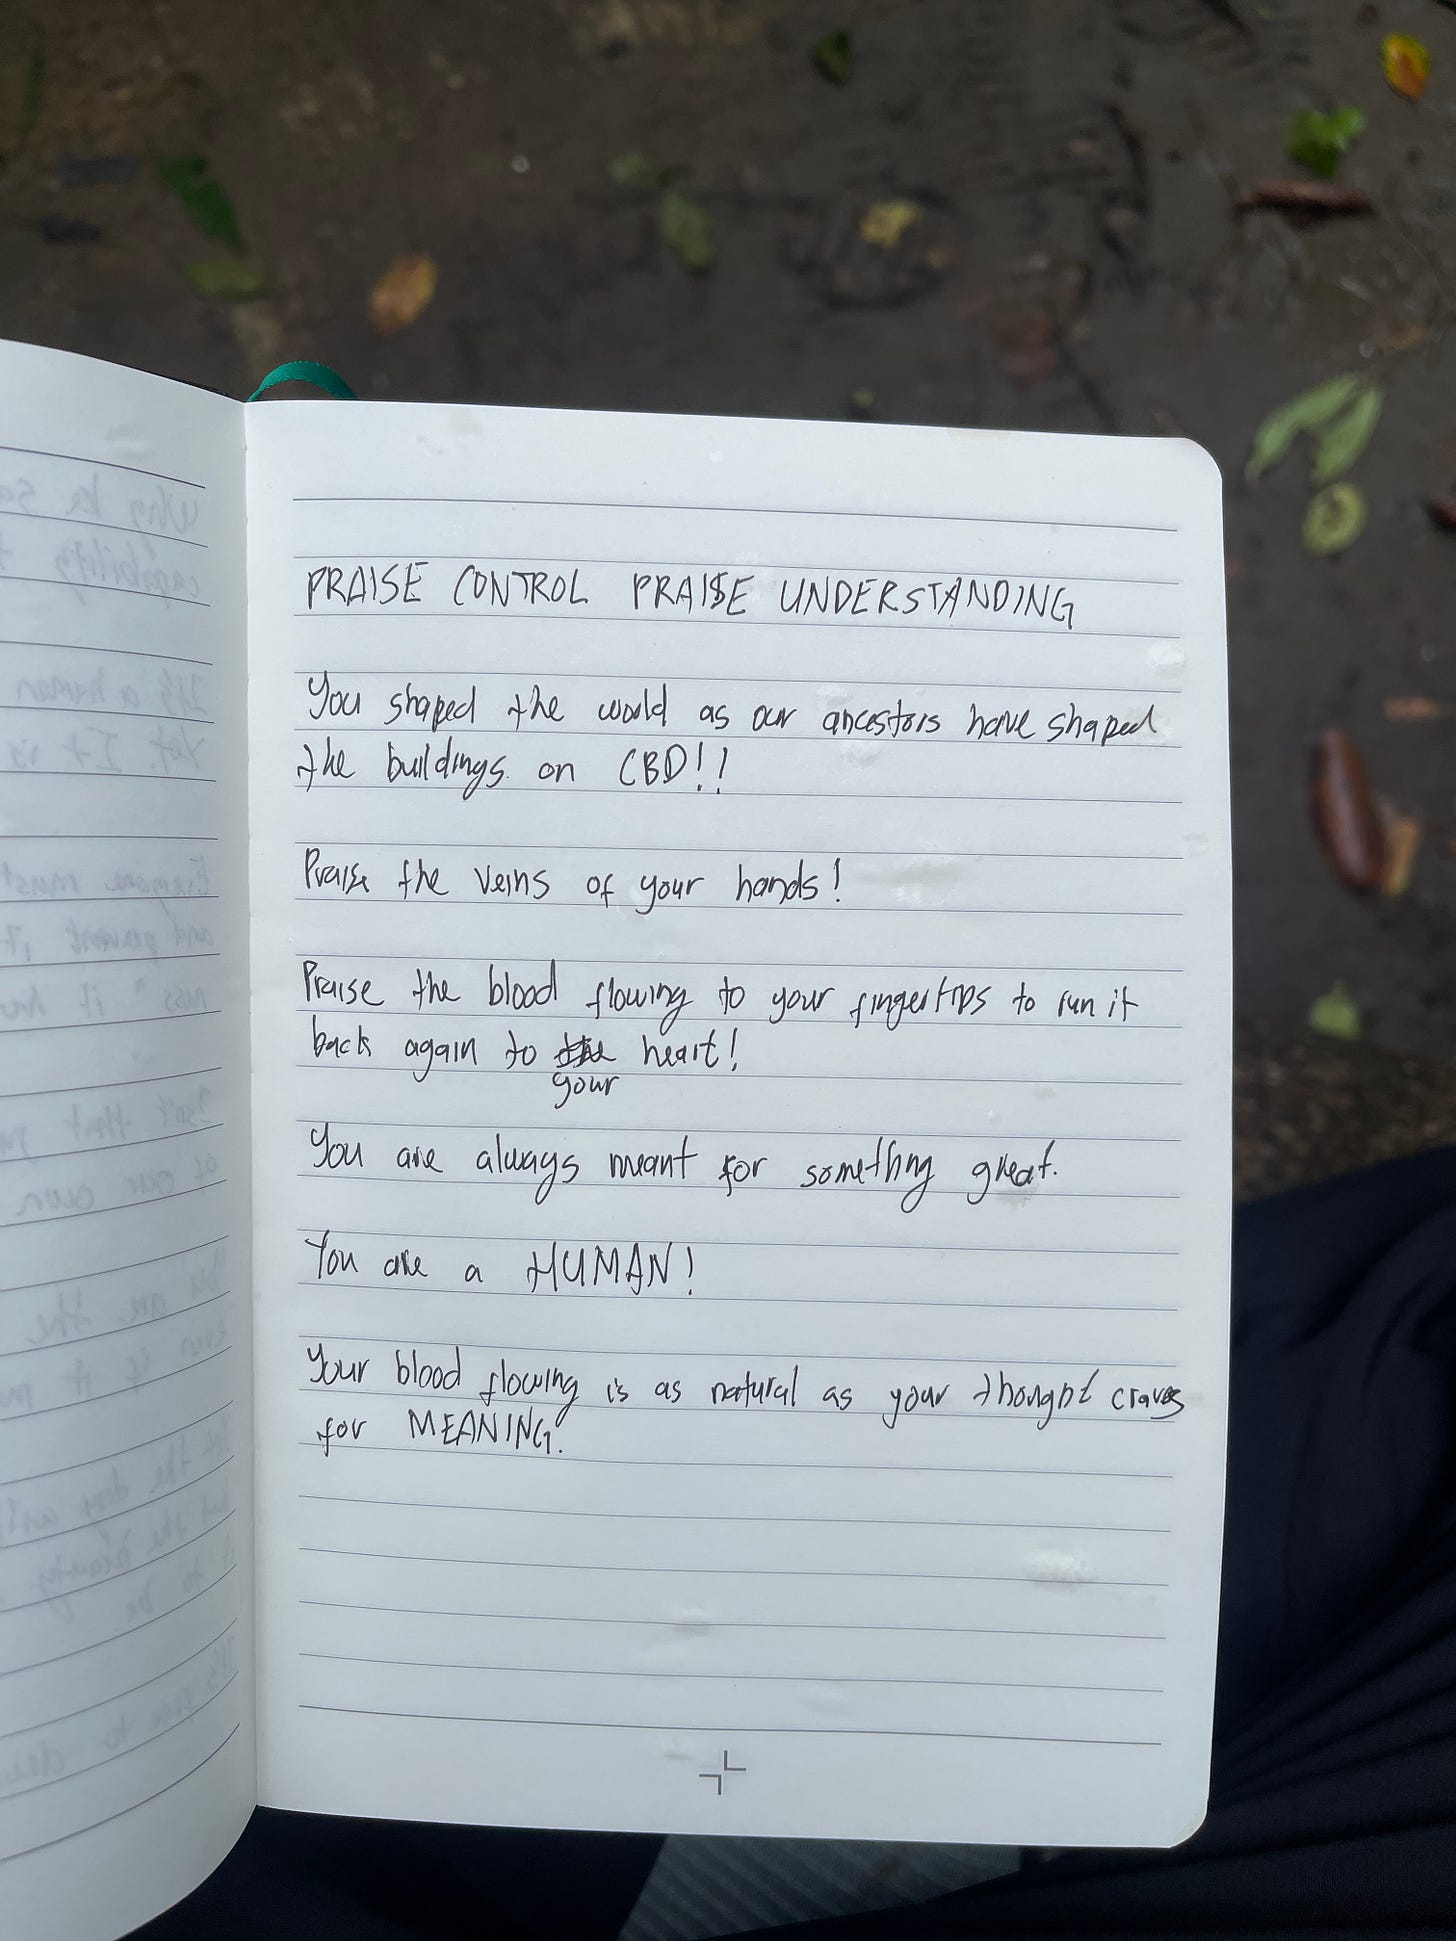 PRAISE CONTROL PRAISE UNDERSTANDING
You shaped the world as our ancestors have shaped
the buildings on CBD!!
Praise the veins of your hands!
Praise the blood flowing to your fingertips to run it
back again to the heart!
your
You are always meant for something great.
You are a HUMAN!
Your blood flowing is as natural as your thought craves
for MEANING!